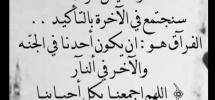 سنجتمع في الآخرة بالتأكيد . .
الفرآق هـو : ان يكون أحدنا في الجنه
والآخر في النآر
﴿ اللهم اجمعنا بكل أحبابنا